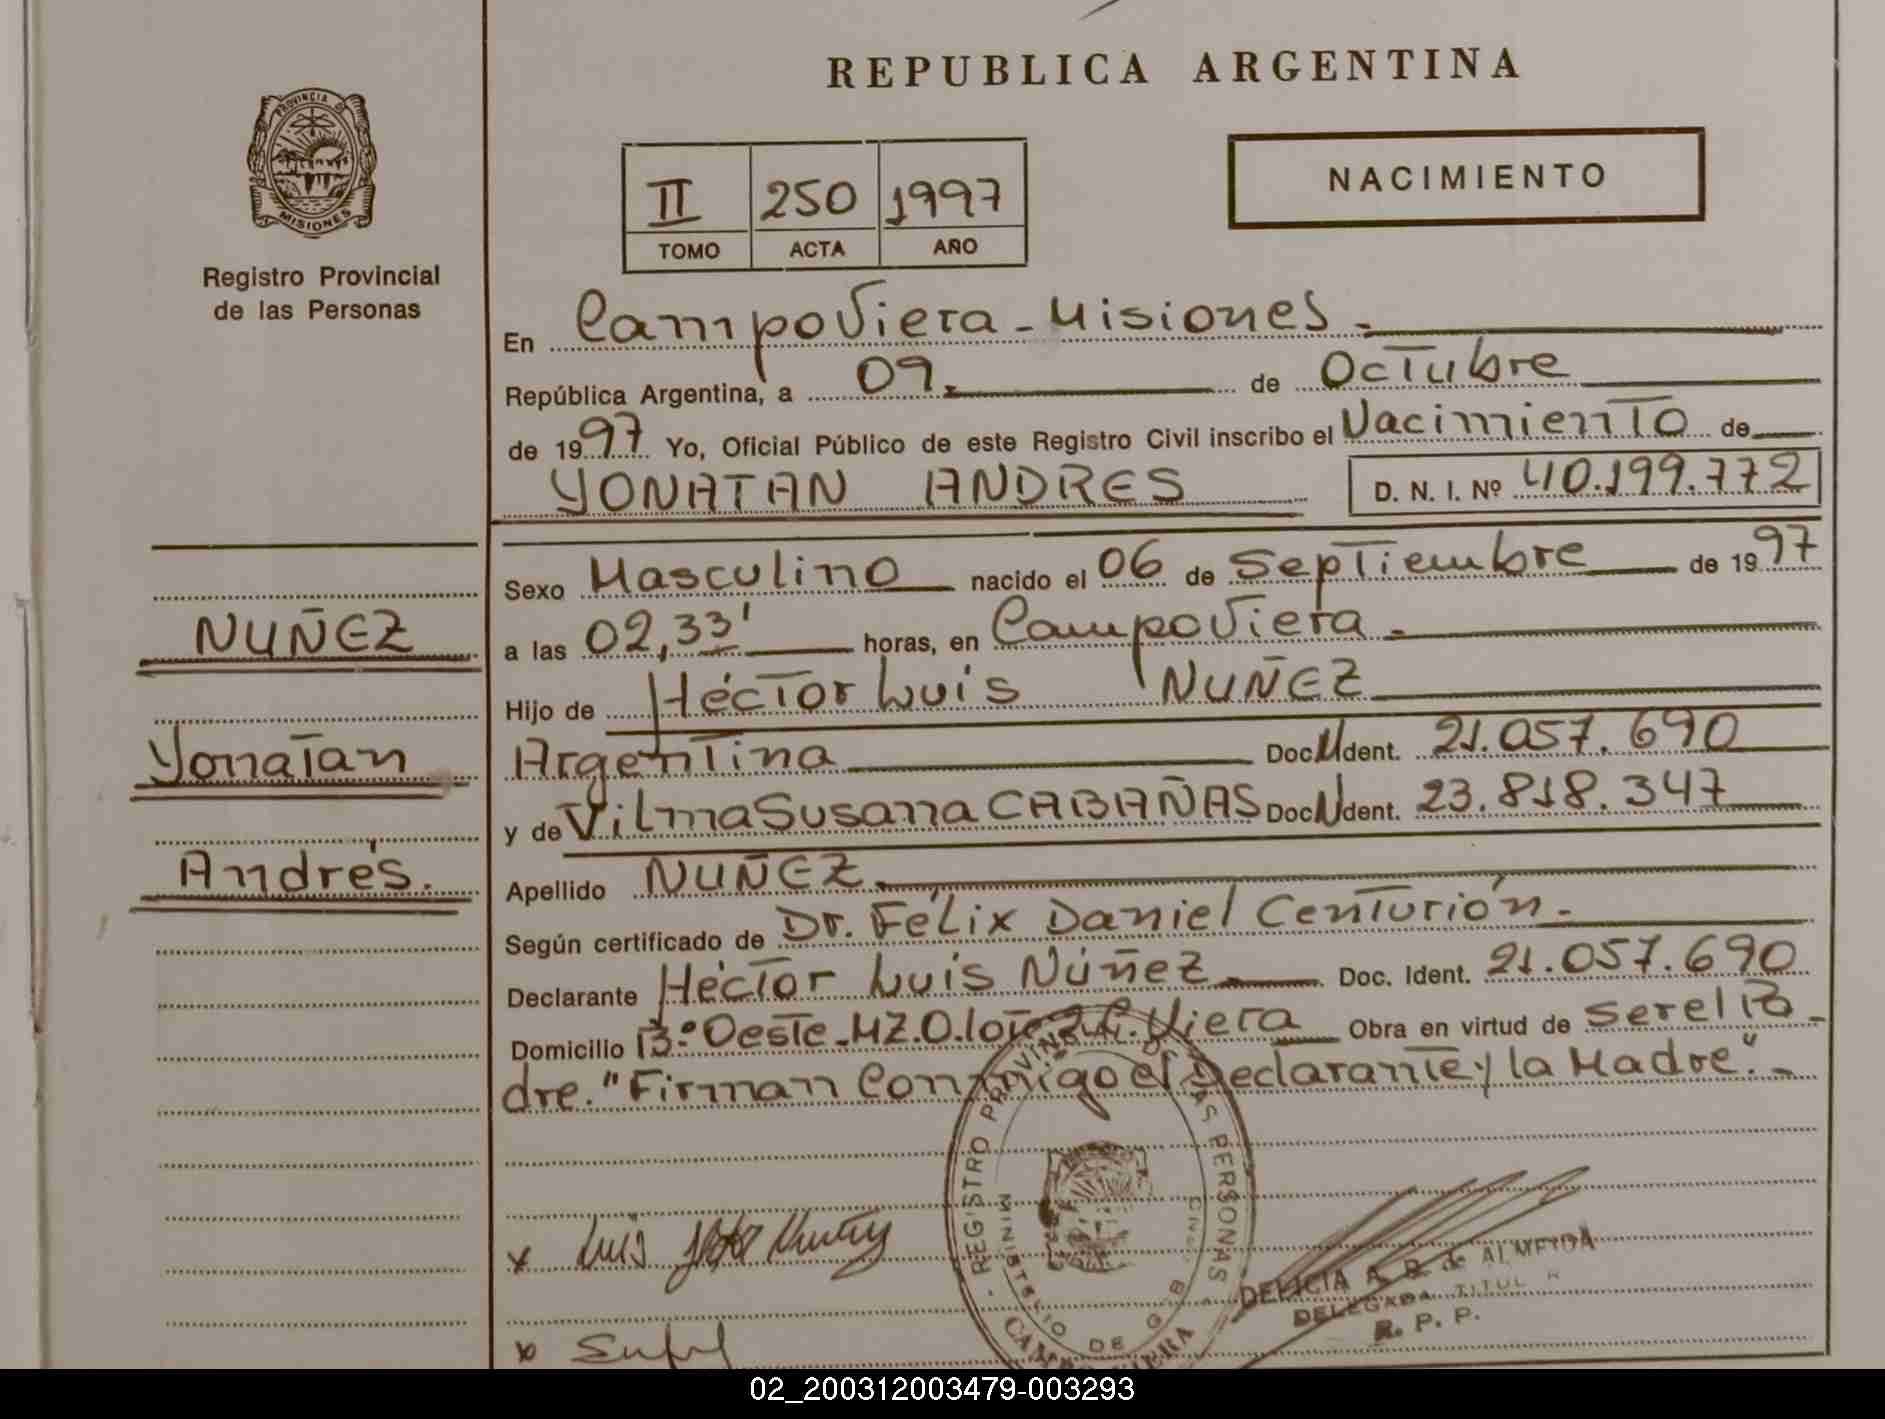 REPUBLICA ARGENTINA
PROVINCIA DE
MISIONES
Registro Provincial
de las Personas
II 250 1997
TOMO ACTA AÑO
NACIMIENTO
En Campo Viera - Misiones.-
República Argentina, a 09.- de Octubre
de 1997 Yo, Oficial Público de este Registro Civil inscribo el Nacimiento de
YONATAN ANDRES D. N. I. Nº 40.199.772
Sexo Masculino nacido el 06 de Septiembre de 1997
NUÑEZ
a las 02,33' horas, en Campo Viera.-
Hijo de Héctor Luis NUÑEZ
Yonatan
Argentina Doc. N Ident. 21.057.690
y de Vilma Susana CABAÑAS Doc. N Ident. 23.818.347
Andrés.
Apellido NUÑEZ.
Según certificado de Dr. Félix Daniel Centurión.-
Declarante Héctor Luis Núñez Doc. Ident. 21.057.690
Domicilio 13.º Oeste-MZ.0.lote.2.C.Viera Obra en virtud de ser el Pa-
dre. "Firman Conmigo el Declarante y la Madre".-
REGISTRO PROVINCIAL DE LAS PERSONAS
MINISTERIO DE GOB
CAMPO VIERA
x Luis Núñez
DELICIA A. B. de ALMEIDA
DELEGADA TITULAR
R. P. P.
x
02_200312003479-003293